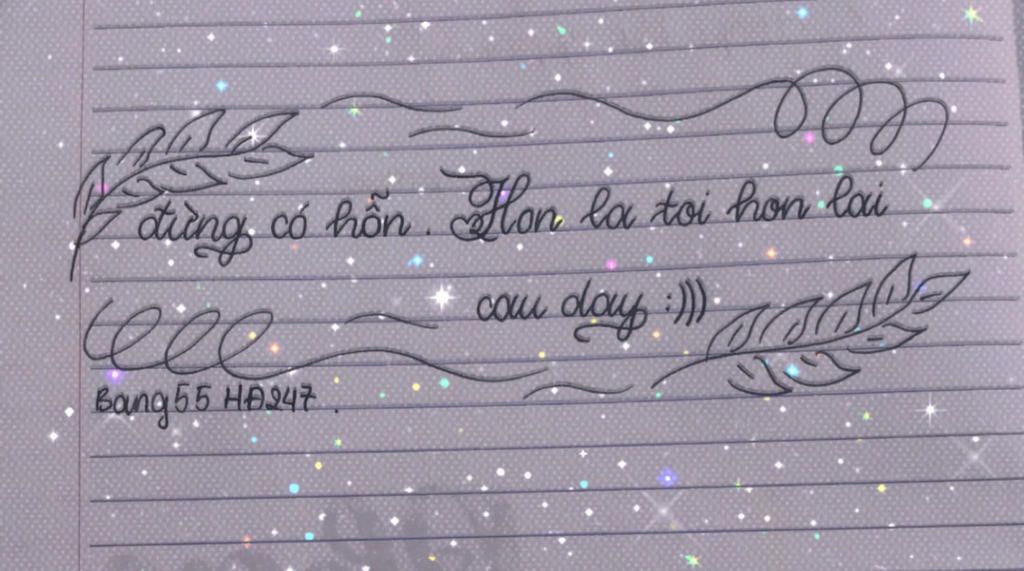 đừng có hỗn. Hon la toi hon lai
cau day :)))
Bang55 HĐ247.